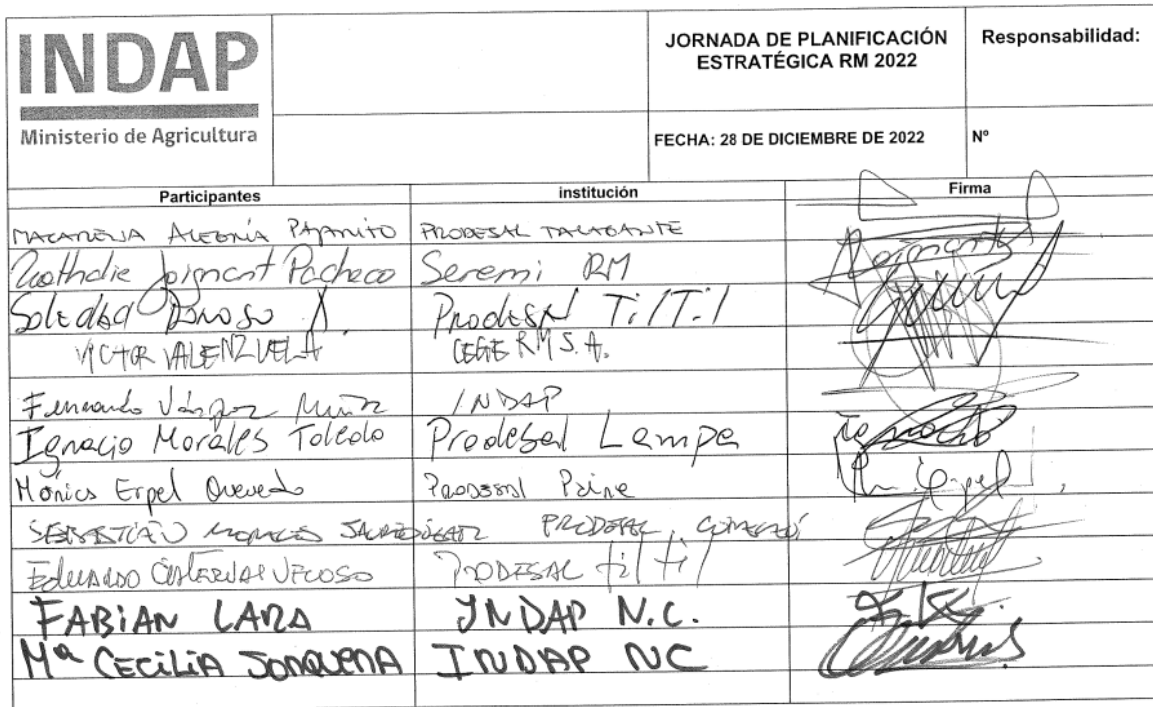 INDAP
Ministerio de Agricultura
JORNADA DE PLANIFICACIÓN
ESTRATÉGICA RM 2022
Responsabilidad:
FECHA: 28 DE DICIEMBRE DE 2022
Nº
Participantes institución Firma
MACARENA ALEGRÍA PRODESAL TALAGANTE
Nathalie Joignant Pacheco Seremi RM
Soledad Donoso Prodesal TilTil
VICTOR VALENZUELA CEGE RM S.A.
Fernando Vásquez Muñoz INDAP
Ignacio Morales Toledo Prodesal Lampa
Mónica Erpel Quevedo PRODESAL Paine
SEBASTIÁN PRODESAL
EDUARDO CISTERNAS VELOSO PRODESAL til til
FABIAN LARA INDAP N.C.
Mª CECILIA JORQUERA INDAP NC